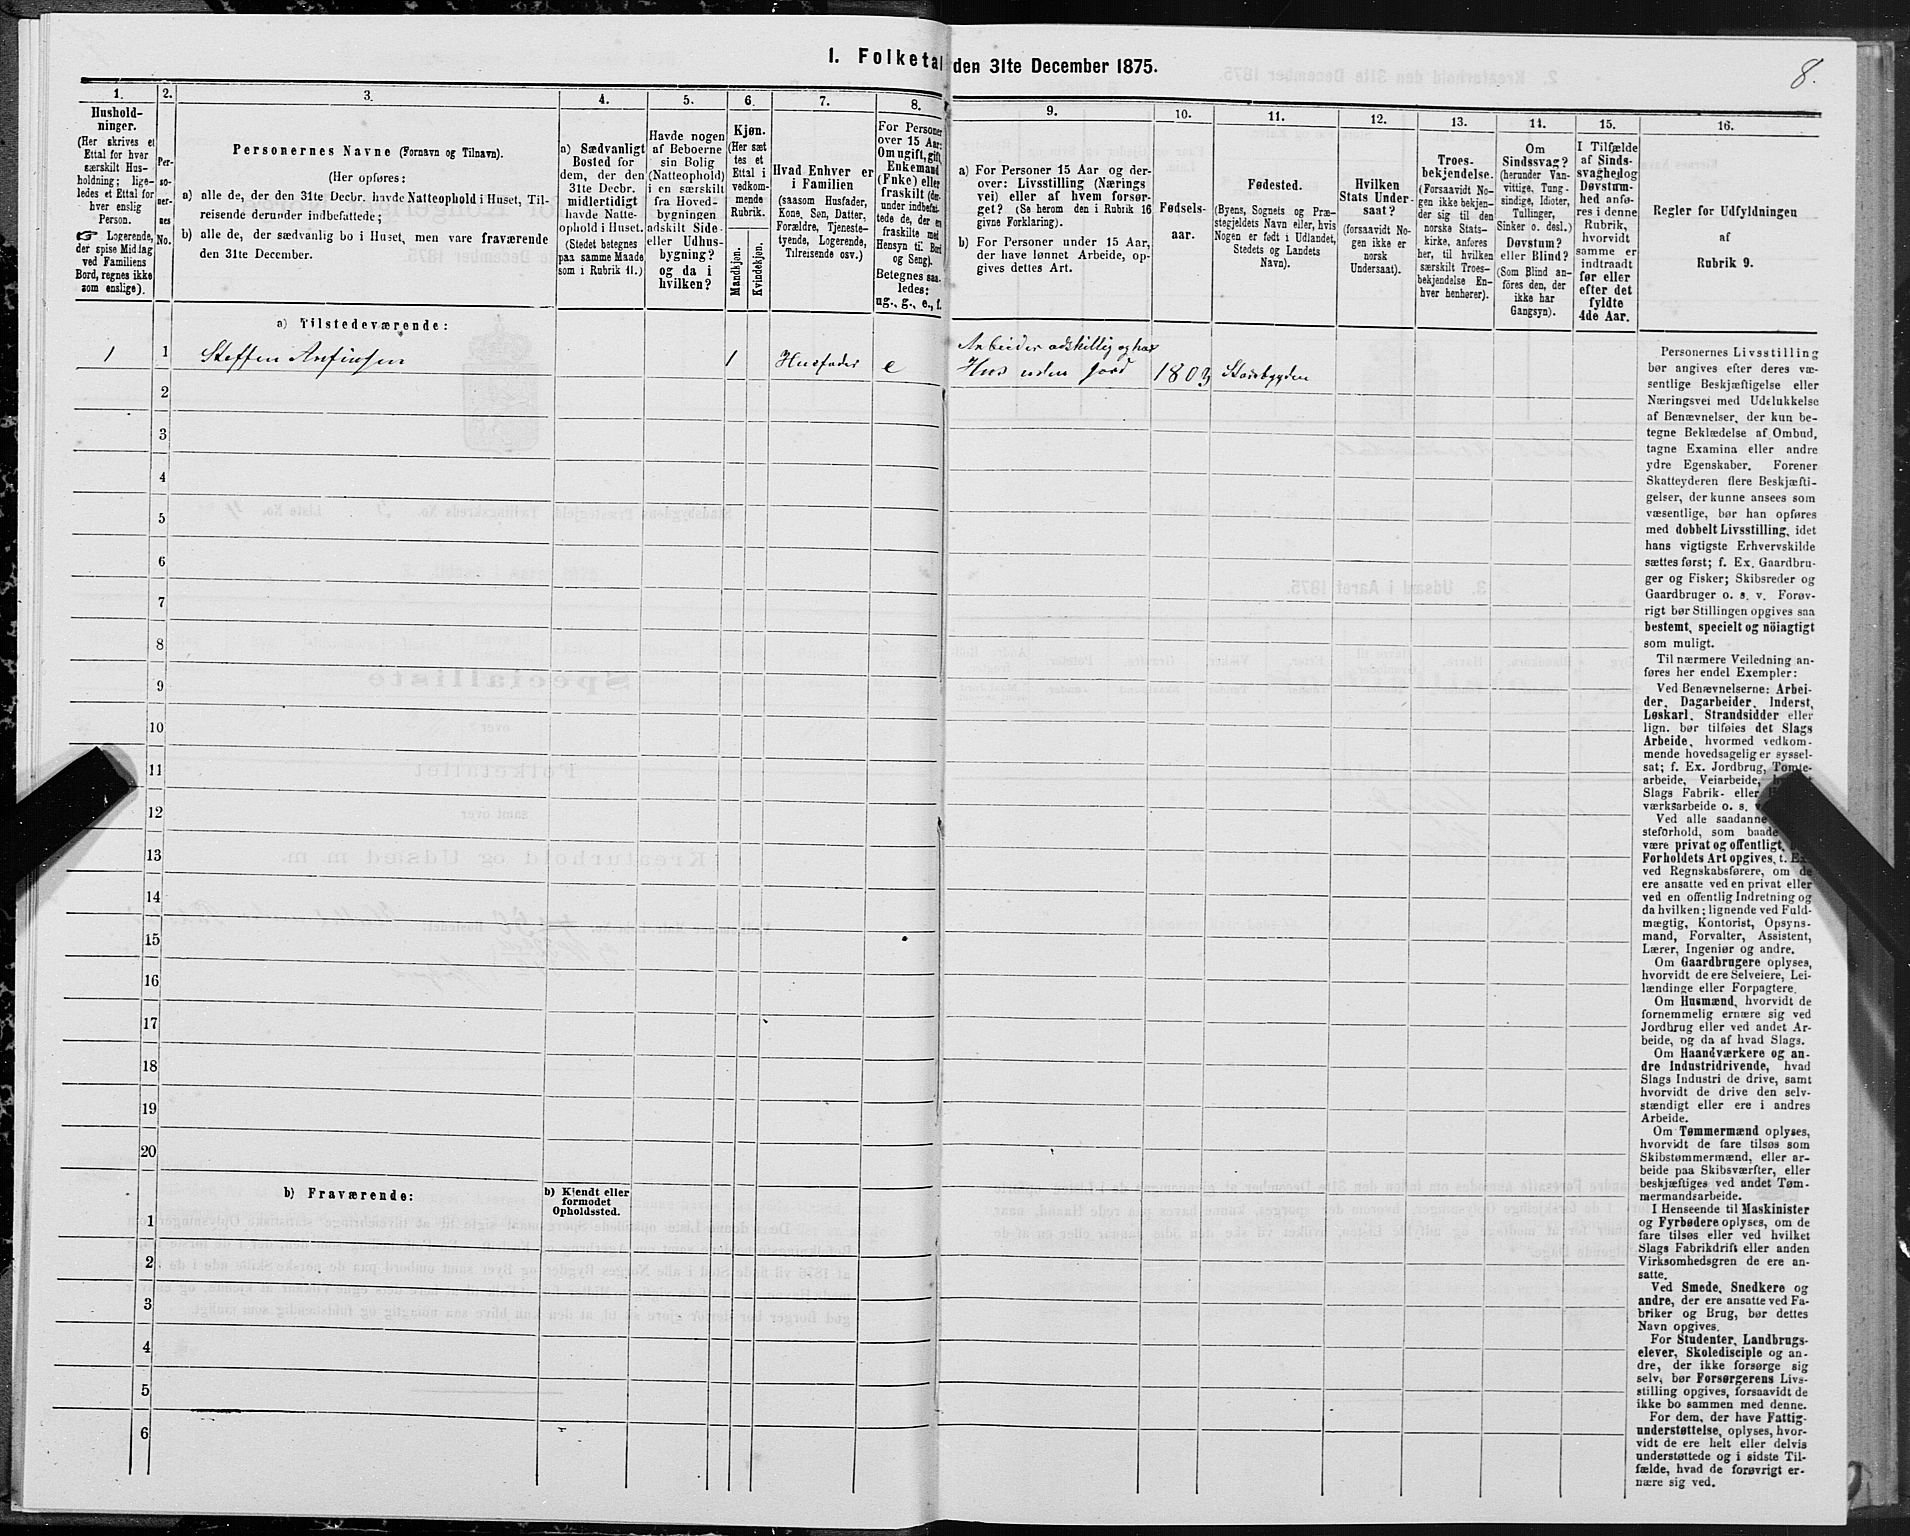 1. Folketal den 31te December 1875.
8.
1.
Hushold-
ninger.
(Her skrives et
Ettal for hver
særskilt Hus-
holdning; lige-
ledes et Ettal for
hver enslig
Person.
Logerende,
der spise Middag
ved Familiens
Bord, regnes ikke
som enslige).
2.
Per-
so-
ner-
nes
No.
3.
Personernes Navne (Fornavn og Tilnavn).
(Her opføres:
a) alle de, der den 31te Decbr. havde Natteophold i Huset, Til-
reisende derunder indbefattede;
b) alle de, der sædvanlig bo i Huset, men vare fraværende
den 31te December.
4.
a) Sædvanligt
Bosted for
dem, der den
31te Decbr.
midlertidigt
havde Natte-
ophold i Huset.
(Stedet betegnes
paa samme Maade
som i Rubrik 11.)
5.
Havde nogen
af Beboerne
sin Bolig
(Natteophold)
i en særskilt
fra Hoved-
bygningen
adskilt Side-
eller Udhus-
bygning?
og da i
hvilken?
6.
Kjøn.
(Her sæt
tes et
Ettal i
vedkom-
mende
Rubrik.
Mandkjøn.
Kvindekjøn.
7.
Hvad Enhver er
i Familien
(saasom Husfader,
Kone, Søn, Datter,
Forældre, Tjeneste-
tyende, Logerende,
Tilreisende osv.)
8.
For Personer
over 15 Aar:
Om ugift, gift,
Enkemand
(Enke) eller
fraskilt (der-
under indbefat-
tede de, der ere
fraskilte med
Hensyn til Bord
og Seng).
Betegnes saa-
ledes:
ug., g., e., f.
9.
a) For Personer 15 Aar og der-
over: Livsstilling (Nærings
vei) eller af hvem forsør-
get? (Se herom den i Rubrik 16
givne Forklaring).
b) For Personer under 15 Aar,
der have lønnet Arbeide, op-
gives dettes Art.
10.
Fødsels-
aar.
11.
Fødested.
(Byens, Sognets og Præ-
stegjeldets Navn eller, hvis
Nogen er født i Udlandet,
Stedets og Landets
Navn).
12.
Hvilken
Stats Under-
saat?
(forsaavidt No-
gen ikke er
norsk
Undersaat).
13.
Troes-
bekjendelse.
(Forsaavidt No-
gen ikke bekjen-
der sig til den
norske Stats-
kirke, anføres
her, til hvilken
særskilt Troes-
bekjendelse En-
hver henhører).
14.
Om
Sindssvag?
(herunder Van-
vittige, Tung-
sindige, Idioter,
Tullinger,
Sinker o. desl.)
Døvstum?
eller Blind?
(Som Blind an-
føres den, der
ikke har
Gangsyn).
15.
I Tilfælde
af Sinds-
svaghed og
Døvstum-
hed anfø-
res i denne
Rubrik,
hvorvidt
samme er
indtraadt
før eller
efter det
fyldte
4de Aar.
16.
Regler for Udfyldningen
af
Rubrik 9.
a) Tilstedeværende:
1 1 Steffen Arntinsen 1 Husfader e Arbeider adskillig og har
Hus uden Jord 1803 Stadsbygden
2
3
4
5
6
7
8
9
10
11
12
13
14
15
16
17
18
19
20
b) Fraværende:
b) Kjendt eller
formodet
Opholdssted.
1
2
3
4
5
6
Personernes Livsstilling
bør angives efter deres væ-
sentlige Beskjæftigelse eller
Næringsvei med Udelukkelse
af Benævnelser, der kun be-
tegne Beklædelse af Ombud,
tagne Examina eller andre
ydre Egenskaber. Forener
Skatteyderen flere Beskjæfti-
gelser, der kunne ansees som
væsentlige, bør han opføres
med dobbelt Livsstilling, idet
hans vigtigste Erhvervskilde
sættes først; f. Ex. Gaardbru-
ger og Fisker; Skibsreder og
Gaardbruger o. s. v. Forøv-
rigt bør Stillingen opgives saa
bestemt, specielt og nöiagtigt
som muligt.
Til nærmere Veiledning an-
føres her endel Exempler:
Ved Benævnelserne: Arbei-
der, Dagarbeider, Inderst,
Løskarl, Strandsidder eller
lign. bør tilføies det Slags
Arbeide, hvormed vedkom-
mende hovedsagelig er syssel-
sat; f. Ex. Jordbrug, Tomte-
arbeide, Veiarbeide,
Slags Fabrik- eller
værksarbeide o. s. v.
Ved alle saadanne
steforhold, som baade
være privat og offentligt,
Forholdets Art opgives, f. Ex.
ved Regnskabsførere, om de
ere ansatte ved en privat eller
ved en offentlig Indretning og
da hvilken; lignende ved Fuld-
mægtig, Kontorist, Opsyns-
mand, Forvalter, Assistent,
Lærer, Ingeniør og andre.
Om Gaardbrugere oplyses,
hvorvidt de ere Selveiere, Lei-
lændinge eller Forpagtere.
Om Husmænd, hvorvidt de
fornemmelig ernære sig ved
Jordbrug eller ved andet Ar-
beide, og da af hvad Slags.
Om Haandværkere og an-
dre Industridrivende, hvad
Slags Industri de drive, samt
hvorvidt de drive den selv-
stændigt eller ere i andres
Arbeide.
Om Tømmermænd oplyses,
hvorvidt de fare tilsøs som
Skibstømmermænd, eller ar-
beide paa Skibsværfter, eller
beskjæftiges ved andet Tøm-
mermandsarbeide.
I Henseende til Maskinister
og Fyrbødere oplyses, om de
fare tilsøs eller ved hvilket
Slags Fabrikdrift eller anden
Virksomhedsgren de ere an-
satte.
Ved Smede, Snedkere og
andre, der ere ansatte ved Fa-
briker og Brug, bør dettes
Navn opgives.
For Studenter, Landbrugs-
elever, Skoledisciple og an-
dre, der ikke forsørge sig
selv, bør Forsørgerens Livs-
stilling opgives, forsaavidt de
ikke bo sammen med denne.
For dem, der have Fattig-
understøttelse, oplyses, hvor-
vidt de ere helt eller delvis
understøttede og i sidste Til-
fælde, hvad de forøvrigt er-
nære sig ved.